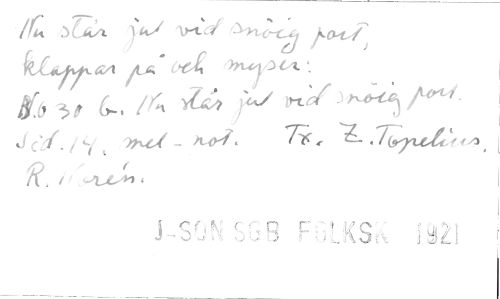 Nu står jul vid snöig port,
klappar på och myser:
No 30 G. Nu står jul vid snöig port.
Sid. 14. mel-not. Tx. Z. Topelius.
R. Norén.
J-SON SGB FOLKSK 1921